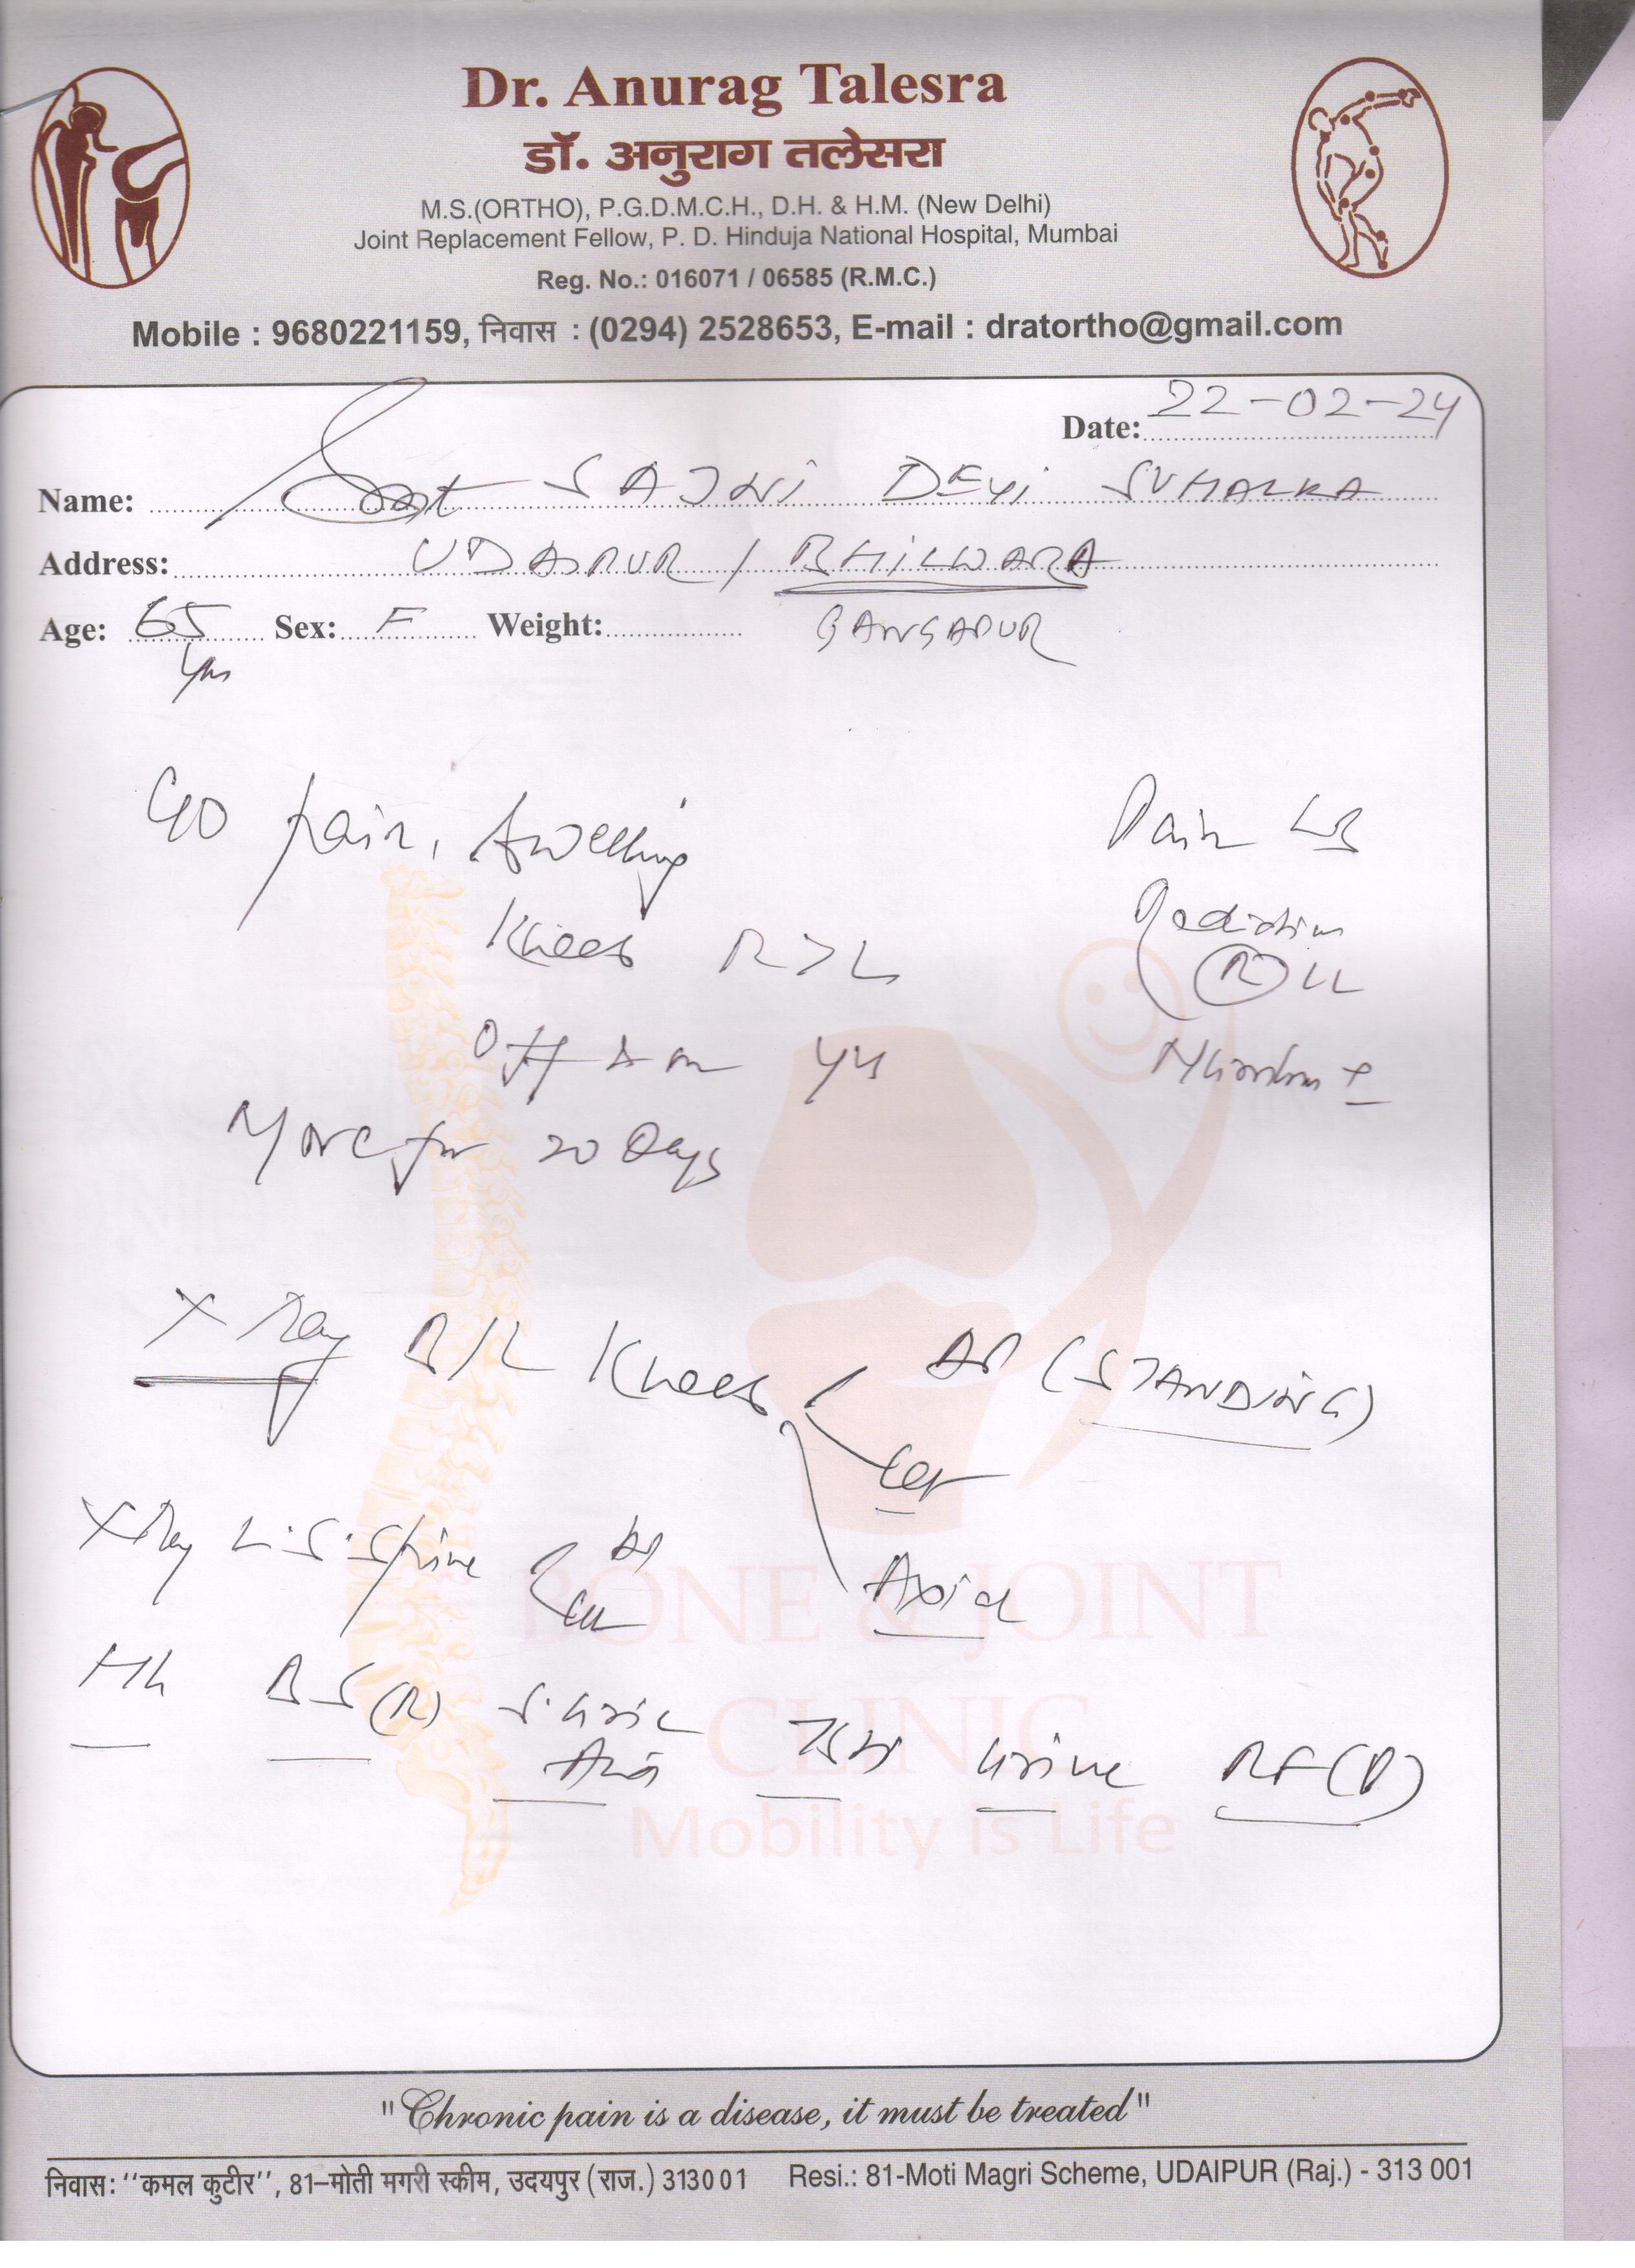 Dr. Anurag Talesra
डॉ. अनुराग तलेसरा
M.S.(ORTHO), P.G.D.M.C.H., D.H. & H.M. (New Delhi)
Joint Replacement Fellow, P. D. Hinduja National Hospital, Mumbai
Reg. No.: 016071 / 06585 (R.M.C.)
Mobile : 9680221159, निवास : (0294) 2528653, E-mail : dratortho@gmail.com
Date: 22-02-24
Name: SAJNI DEVI SUHALKA
Address: UDAIPUR / BHILWARA
Age: 65 Sex: F Weight:
yrs GANGAPUR
C/O pain, swelling
Knees R>L
Off & on yrs
More for 20 Days
Pain LS
Radiation
(R) LL
Numbness +
X Ray B/L Knees AP (STANDING)
Lat
Axial
X Ray L.S. Spine AP
Lat
Hb BS(R) S. Uric TSH Urine RF(P)
Acid
BONE & JOINT
CLINIC
Mobility is Life
"Chronic pain is a disease, it must be treated"
निवास: ‘‘कमल कुटीर’’, 81–मोती मगरी स्कीम, उदयपुर (राज.) 313001 Resi.: 81-Moti Magri Scheme, UDAIPUR (Raj.) - 313 001